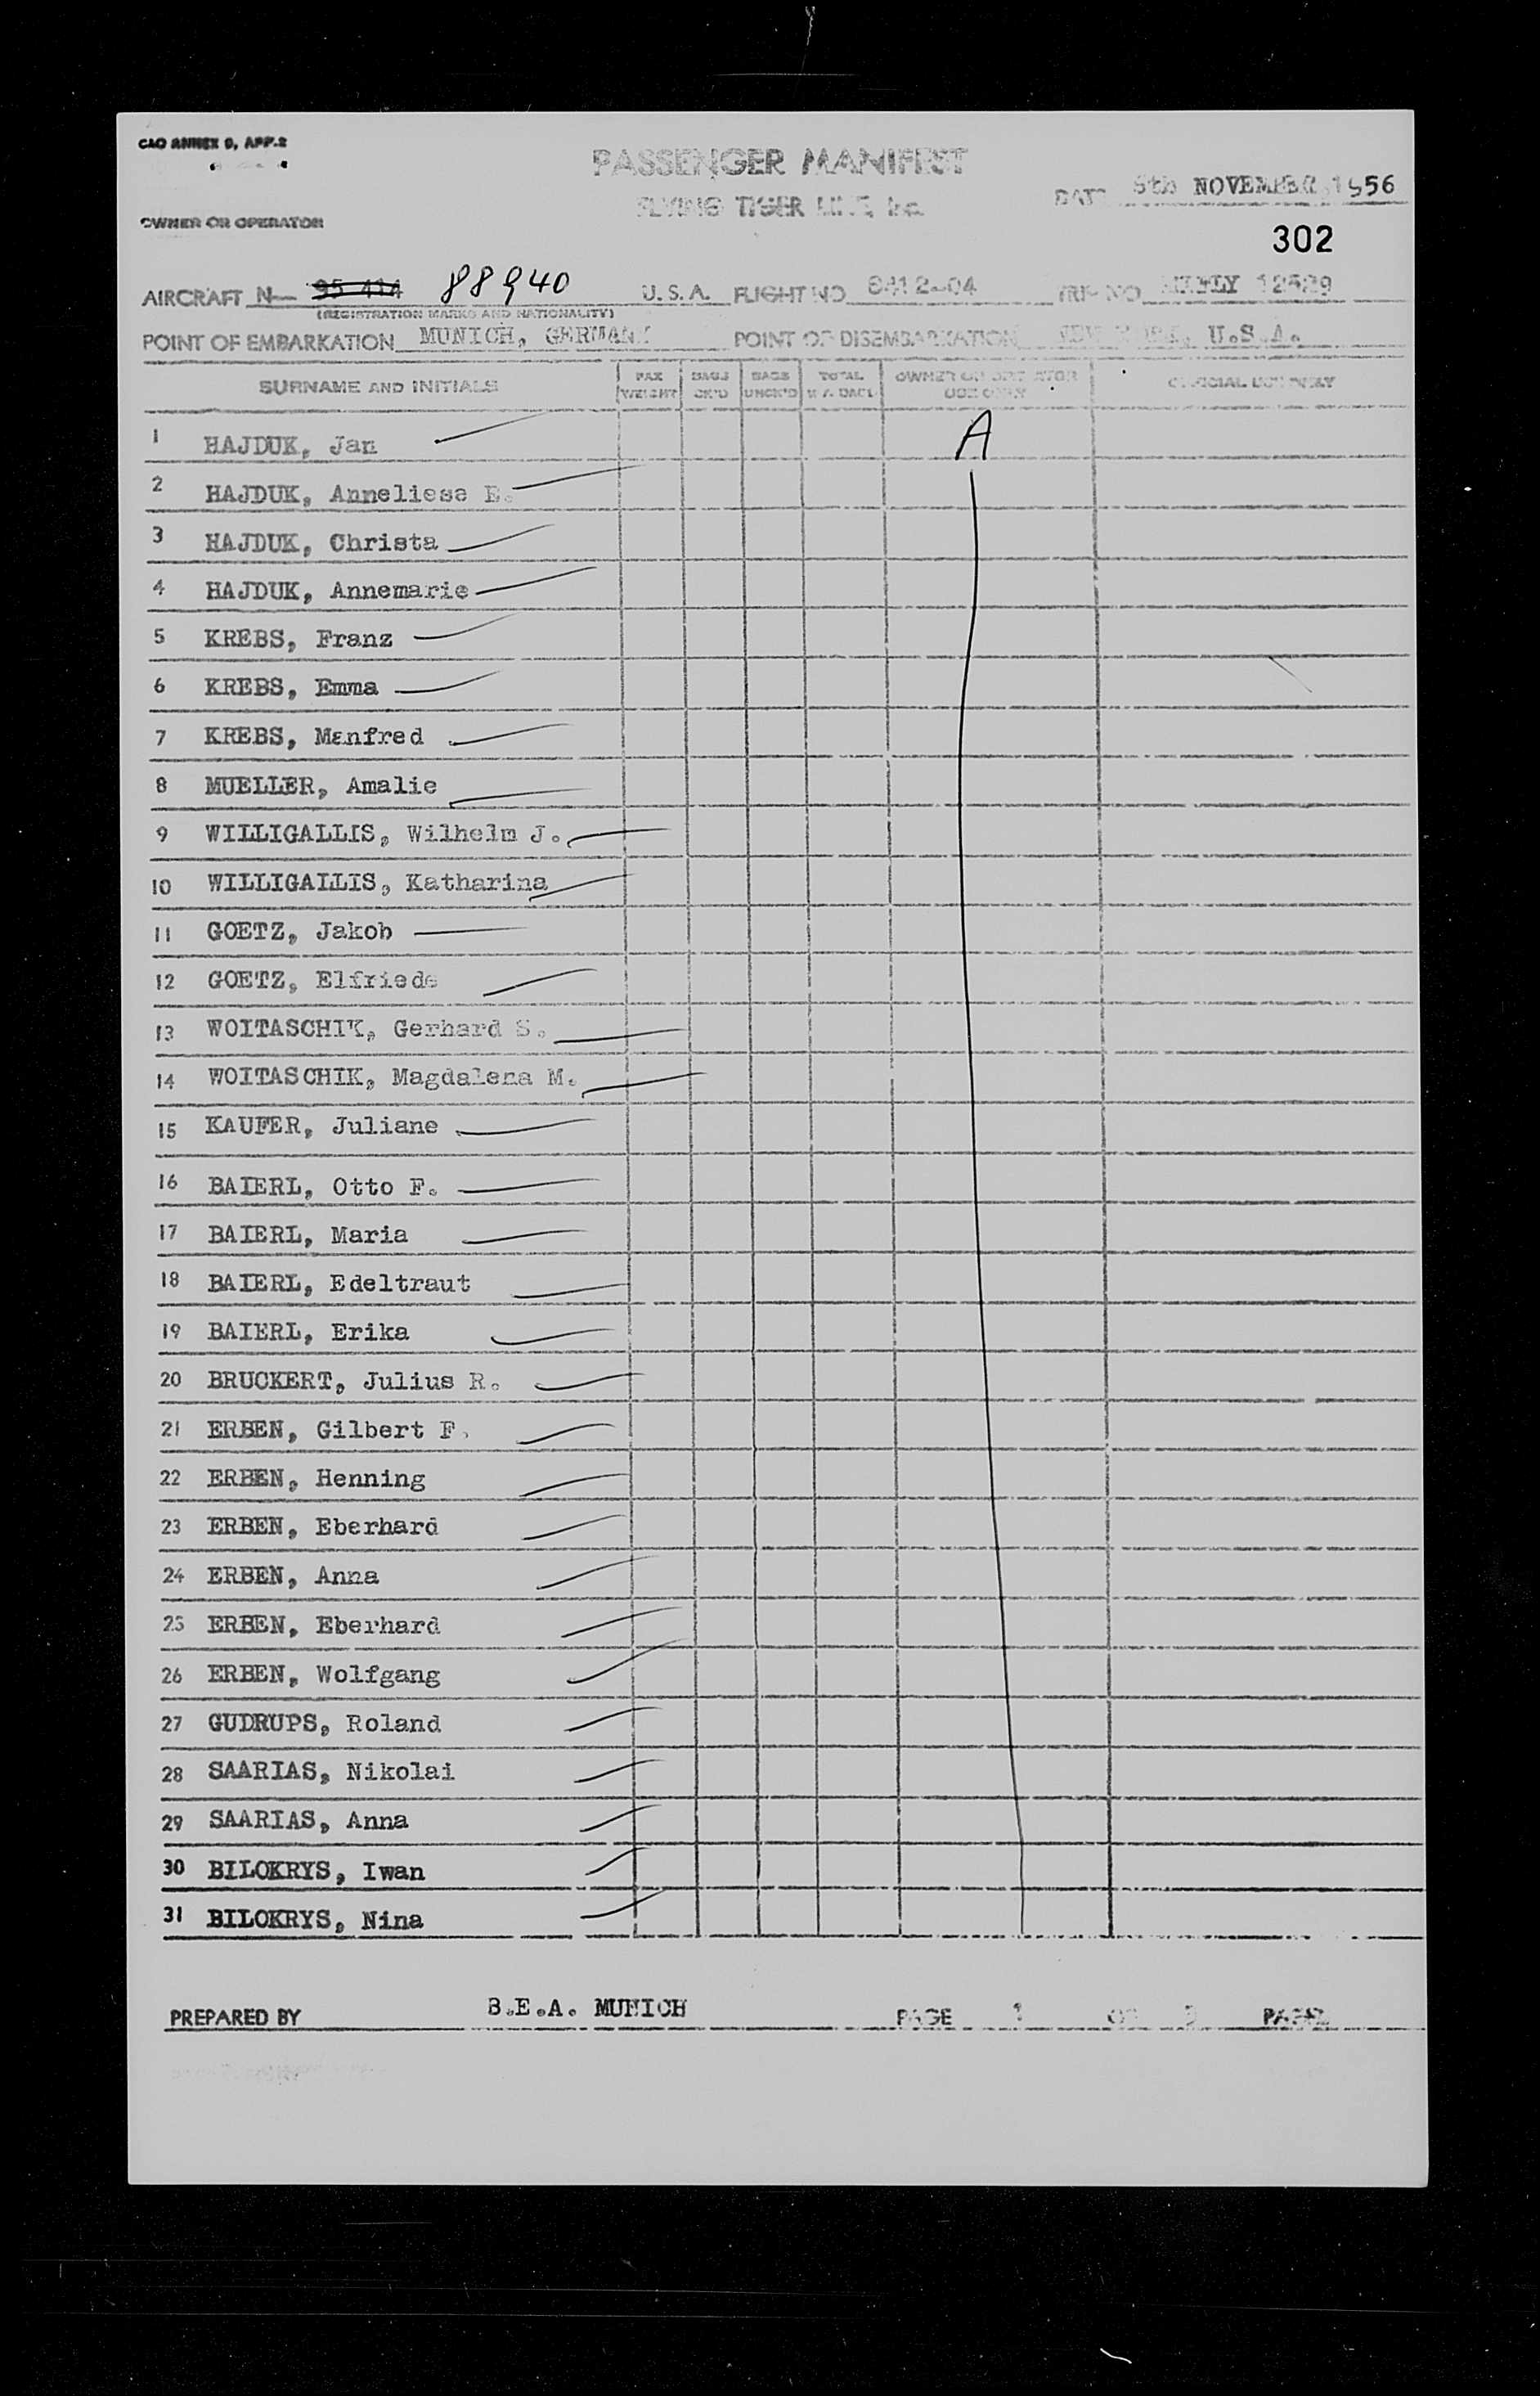 CAO ANNEX 9, APP.2
PASSENGER MANIFEST
FLYING TIGER LINE, Inc.
DATE NOVEMBER 1956
OWNER OR OPERATOR
302
AIRCRAFT N 95 414 88940 U.S.A. FLIGHT NO 8412-04 TRIP NO 12529
(REGISTRATION MARKS AND NATIONALITY)
POINT OF EMBARKATION MUNICH, GERMANY POINT OF DISEMBARKATION NEW YORK, U.S.A.
SURNAME AND INITIALS PAX WEIGHT BAGS CK'D BAGS UNCK'D TOTAL OWNER OR OPERATOR USE ONLY OFFICIAL USE ONLY
1 HAJDUK, Jan A
2 HAJDUK, Anneliese E.
3 HAJDUK, Christa
4 HAJDUK, Annemarie
5 KREBS, Franz
6 KREBS, Emma
7 KREBS, Manfred
8 MUELLER, Amalie
9 WILLIGALLIS, Wilhelm J.
10 WILLIGALLIS, Katharina
11 GOETZ, Jakob
12 GOETZ, Elfriede
13 WOITASCHIK, Gerhard S.
14 WOITASCHIK, Magdalena M.
15 KAUFER, Juliane
16 BAIERL, Otto F.
17 BAIERL, Maria
18 BAIERL, Edeltraut
19 BAIERL, Erika
20 BRUCKERT, Julius R.
21 ERBEN, Gilbert F.
22 ERBEN, Henning
23 ERBEN, Eberhard
24 ERBEN, Anna
25 ERBEN, Eberhard
26 ERBEN, Wolfgang
27 GUDRUPS, Roland
28 SAARIAS, Nikolai
29 SAARIAS, Anna
30 BILOKRYS, Iwan
31 BILOKRYS, Nina
PREPARED BY B.E.A. MUNICH PAGE 1 OF PAGES